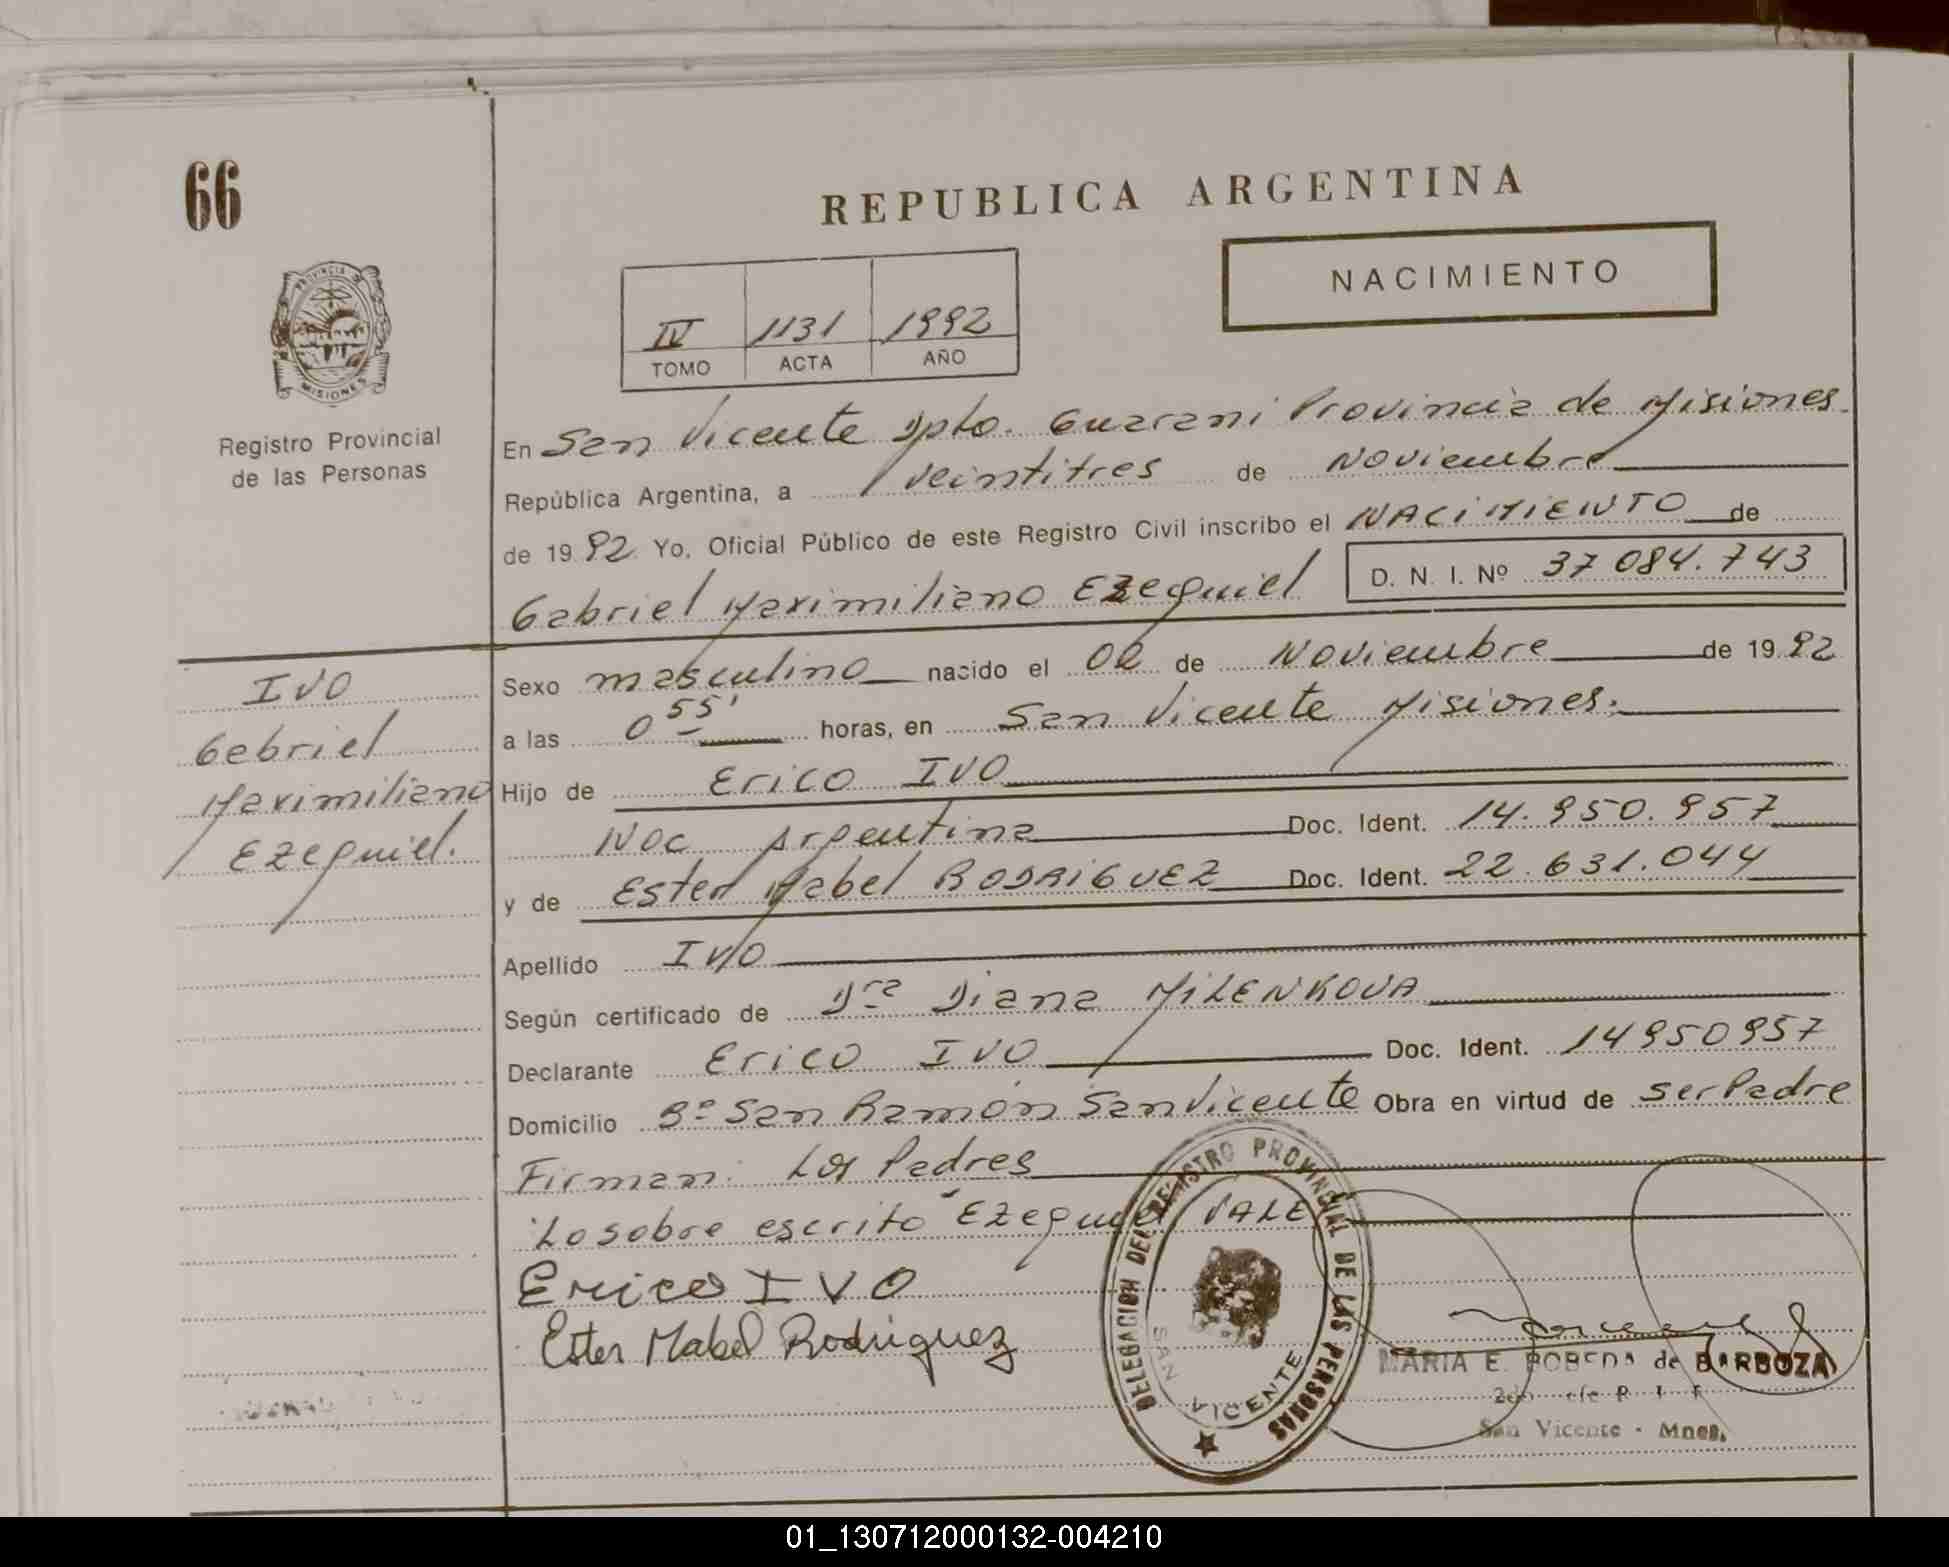 66
REPUBLICA ARGENTINA
NACIMIENTO
IV 1131 1992
TOMO ACTA AÑO
PROVINCIA DE
MISIONES
Registro Provincial
de las Personas
En San Vicente Dpto. Guarani Provincia de Misiones.
República Argentina, a veintitres de Noviembre
de 1992 Yo, Oficial Público de este Registro Civil inscribo el NACIMIENTO de
Gabriel Maximiliano Ezequiel D. N. I. Nº 37 084.743
IVO
Gabriel
Maximiliano
Ezequiel.
Sexo masculino nacido el 02 de Noviembre de 1992
a las 0 55' horas, en San Vicente Misiones.
Hijo de Erico IVO
Nac Argentina Doc. Ident. 14.950.957
y de Ester Mabel RODRIGUEZ Doc. Ident. 22.631.044
Apellido IVO
Según certificado de Dra Diana MILENKOVA
Declarante Erico IVO Doc. Ident. 14950957
Domicilio Bº San Ramón San Vicente Obra en virtud de ser Padre
Firman: Los Padres
Lo sobre escrito "Ezequiel VALE
Erico IVO
Ester Mabel Rodriguez
DELEGACION DEL REGISTRO PROVINCIAL DE LAS PERSONAS
SAN VICENTE
MARIA E. de BARBOZA
San Vicente - Mnes.
01_130712000132-004210